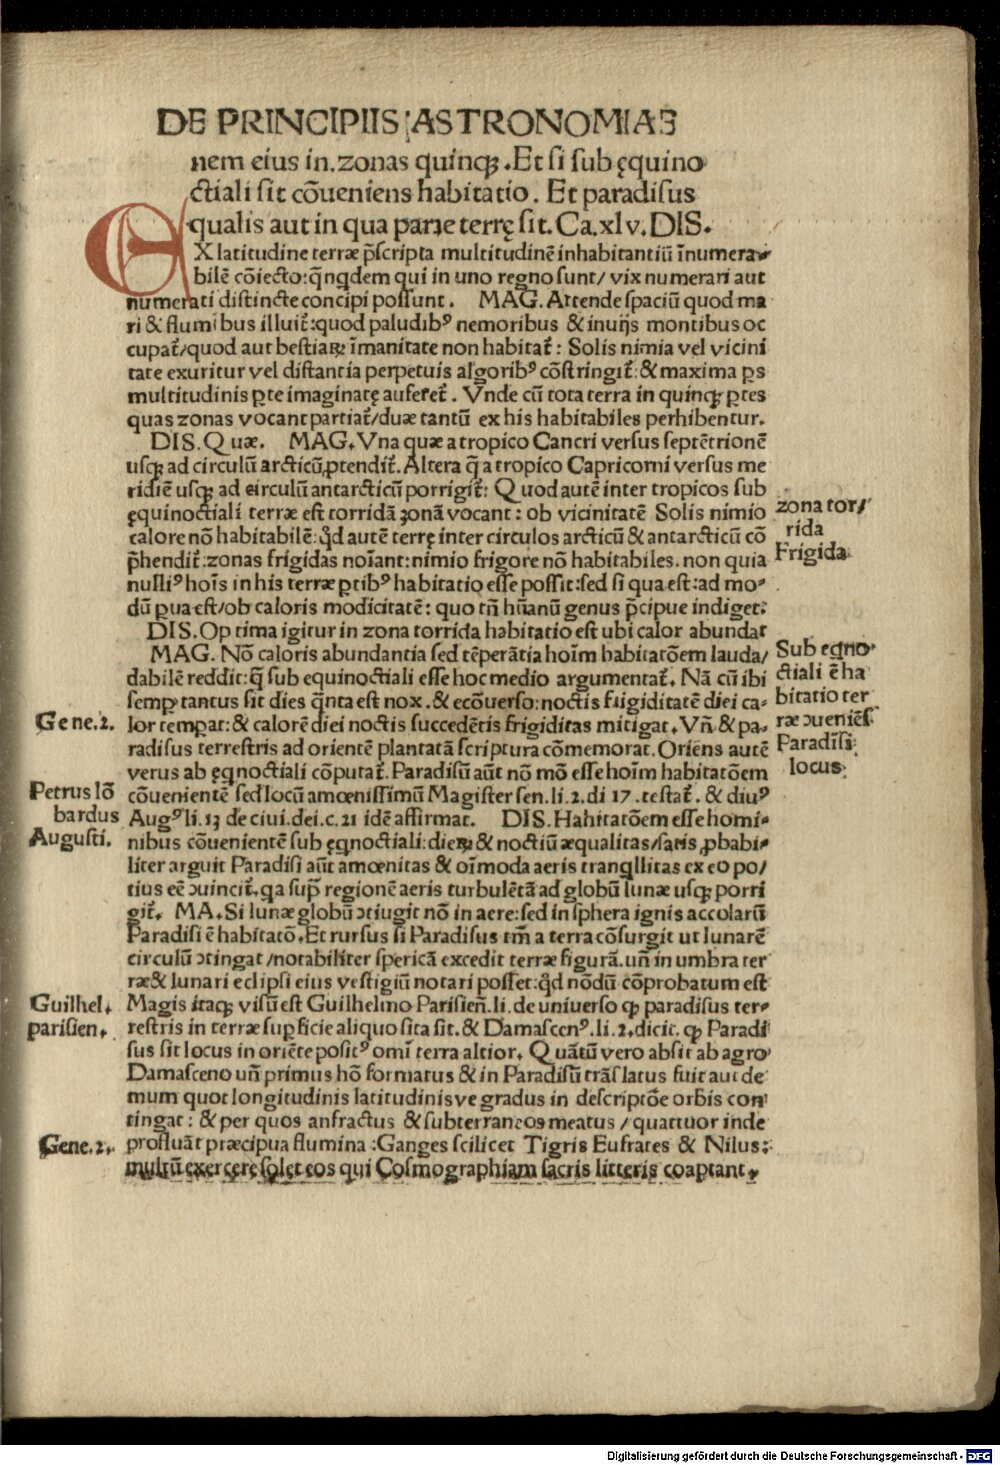 DE PRINCIPIIS ASTRONOMIAE
nem eius in.zonas quinqꝫ .Et si sub ęquino
ctiali sit cōueniens habitatio. Et paradisus
qualis aut in qua parte terrę sit. Ca.xlv. DIS.
EX latitudine terræ p̄scripta multitudinē inhabitantiū īnumera-
bilē cōiecto:q̄nqdem qui in uno regno sunt/ vix numerari aut
numerati distincte concipi possunt. MAG. Attende spaciū quod ma
ri & flumibus illuit̄:quod paludibꝰ nemoribus & inuijs montibus oc
cupat̄/quod aut bestiaꝝ īmanitate non habitat̄: Solis nimia vel vicini
tate exuritur vel distantia perpetuis algoribꝰ cōstringit̄:& maxima ps
multitudinis ꝑte imaginatę auferet̄. Vnde cū tota terra in quinqꝫ ꝑtes
quas zonas vocant partiat̄/duæ tantū ex his habitabiles perhibentur.
DIS. Quæ. MAG. Vna quæ a tropico Cancri versus septētrionē
usqꝫ ad circulū arcticū ꝓtendit̄. Altera q̄ a tropico Capricorni versus me
ridiē usqꝫ ad circulū antarcticū porrigit̄: Quod autē inter tropicos sub
ęquinoctiali terræ est torridā ʒonā vocant: ob vicinitatē Solis nimio
calore nō habitabilē: qd̄ autē terrę inter circulos arcticū & antarcticū cō
p̄hendit̄:zonas frigidas noīant:nimio frigore nō habitabiles. non quia
nullꝰ hoīs in his terræ ꝑtibꝰ habitatio esse possit:sed si qua est:ad mo-
dū ꝑua est/ob caloris modicitatē: quo tn̄ hūanū genus p̄cipue indiget.
DIS. Optima igitur in zona torrida habitatio est ubi calor abundat
MAG. Nō caloris abundantia sed tēperātia hoīm habitatōem lauda/
dabilē reddit:q̄ sub equinoctiali esse hoc medio argumentat̄. Nā cū ibi
semꝑ tantus sit dies q̄nta est nox. & ecōuerso:noctis friigiditatē diei ca-
lor temꝑat:& calorē diei noctis succedētis frigiditas mitigat. Vn̄ & pa-
radisus terrestris ad orientē plantatā scriptura cōmemorat. Oriens autē
verus ab ęqnoctiali cōputat̄. Paradisū aūt nō mō esse hoīm habitatōem
cōuenientē sed locū amœnissimū Magister sen. li. 2. di 17 . testat̄. & diuꝰ
Augꝰ li. 13 de ciui. dei. c. 21 idē affirmat. DIS. Habitatōem esse homi-
nibus cōuenientē sub ęqnoctiali:dieꝝ & noctiū æqualitas/satis ꝓbabi-
liter arguit Paradisi aūt amœnitas & oīmoda aeris tranqllitas ex eo po/
tius eē ꝯuincit̄. qa sup̄ regionē aeris turbulētā ad globū lunæ usqꝫ porri
git̄. MA. Si lunæ globū ꝯtiugit nō in aere:sed in sphera ignis accolarū
Paradisi ē habitatō. Et rursus si Paradisus tm̄ a terra cōsurgit ut lunarē
circulū ꝯtingat/notabiliter spericā excedit terræ figurā. un̄ in umbra ter
ræ & lunari eclipsi eius vestigiū notari posset:qd̄ nōdū cōprobatum est
Magis itaqꝫ visū est Guilhelmo Parisien̄. li. de uniuerso qꝫ paradisus ter-
restris in terræ suꝑficie aliquo sita sit. & Damascenꝰ. li. 2. dicit. qꝫ Paradi
sus sit locus in oriēte positꝰ omī terra altior. Quātū vero absit ab agro
Damasceno un̄ primus hō formatus & in Paradisū trāslatus fuit aut de
mum quot longitudinis latitudinisve gradus in descriptōe orbis con
tingat: & per quos anfractus & subterraneos meatus / quattuor inde
profluāt præcipua flumina :Ganges scilicet Tigris Eufrates & Nilus:
multū exercere solet eos qui Cosmographiam sacris litteris coaptant.
zona tor/
rida
Frigida
Sub eqno
ctiali ē ha
bitatio ter
ræ ꝯueniēs
Paradisi
locus
Gene. 2.
Petrus lō
bardus
Augusti.
Guilhel.
parisien.
Gene. 2.
Digitalisierung gefördert durch die Deutsche Forschungsgemeinschaft - DFG